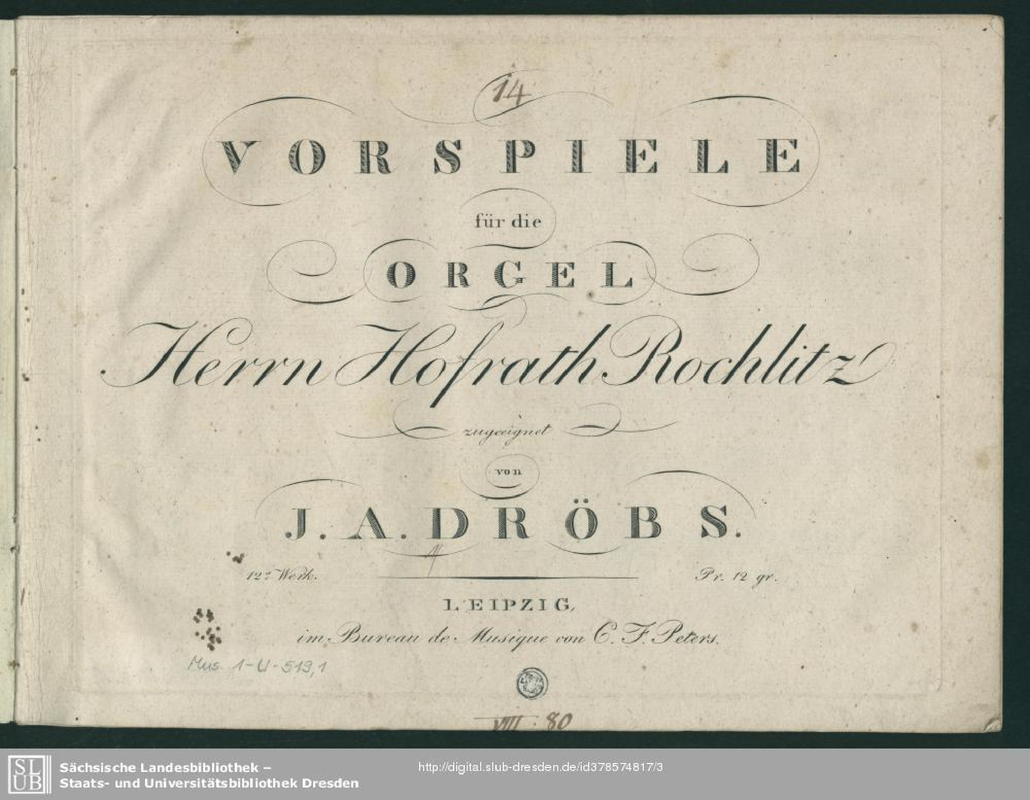 14
VORSPIELE
für die
ORGEL
Herrn Hofrath Rochlitz
zugeeignet
von
J. A. DRÖBS.
12s Werk. Pr. 12 gr.
LEIPZIG,
im Bureau de Musique von C. F. Peters.
Mus. 1-U-519,1
VIII 80
SLUB
Sächsische Landesbibliothek –
Staats- und Universitätsbibliothek Dresden
http://digital.slub-dresden.de/id378574817/3